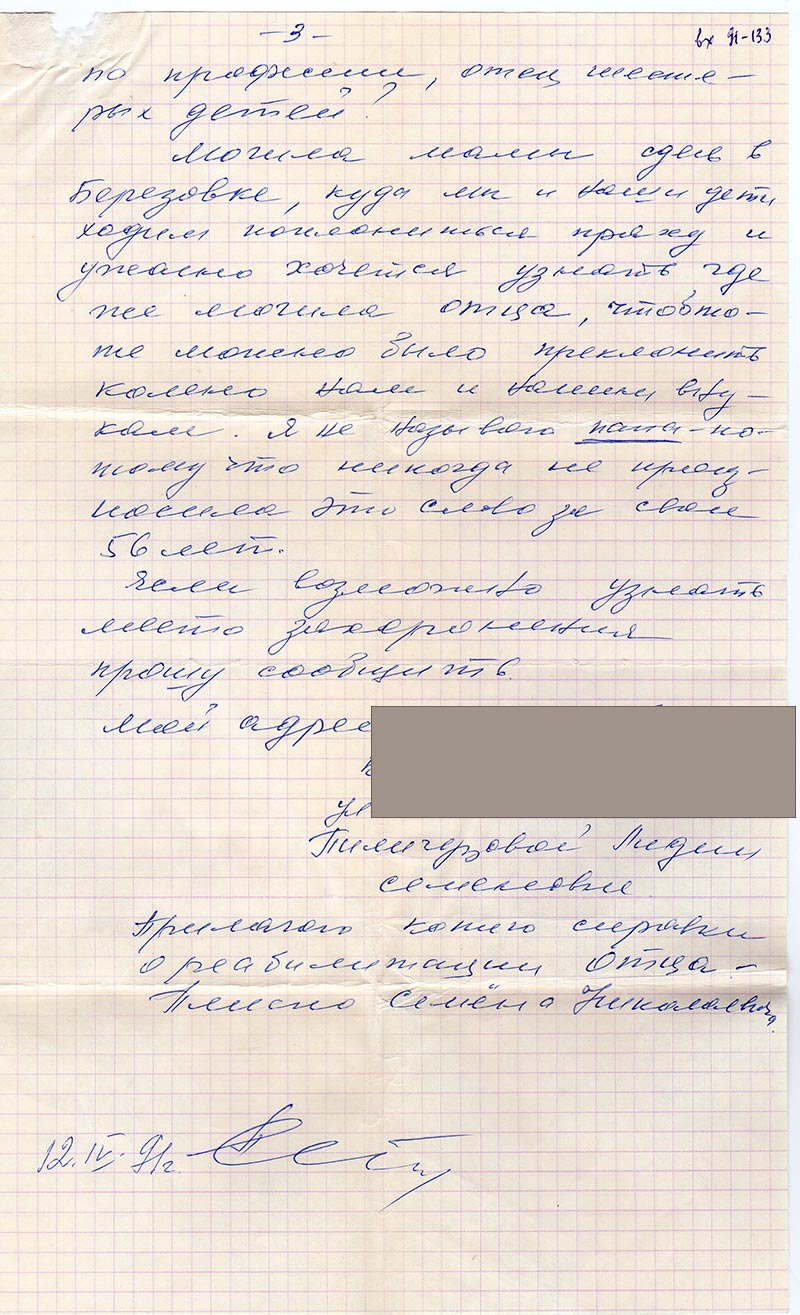 -3-
вх 91-133
по профессии, отец шесте-
рых детей?
Могила мамы здесь в
Березовке, куда мы и наши дети
ходим поклониться праху и
ужасно хочется узнать, где
же могила отца, чтобы то-
же можно было преклонить
колено нам и нашим вну-
кам. Я не называю папа - по-
тому что никогда не произ-
носила это слово за свои
56 лет.
Если возможно узнать
место захоронения
прошу сообщить.
Мой адрес
ул
Семеновне
Прилагаю копию справки
о реабилитации Отца -
Семёна Николаевича.
12.IV.91г